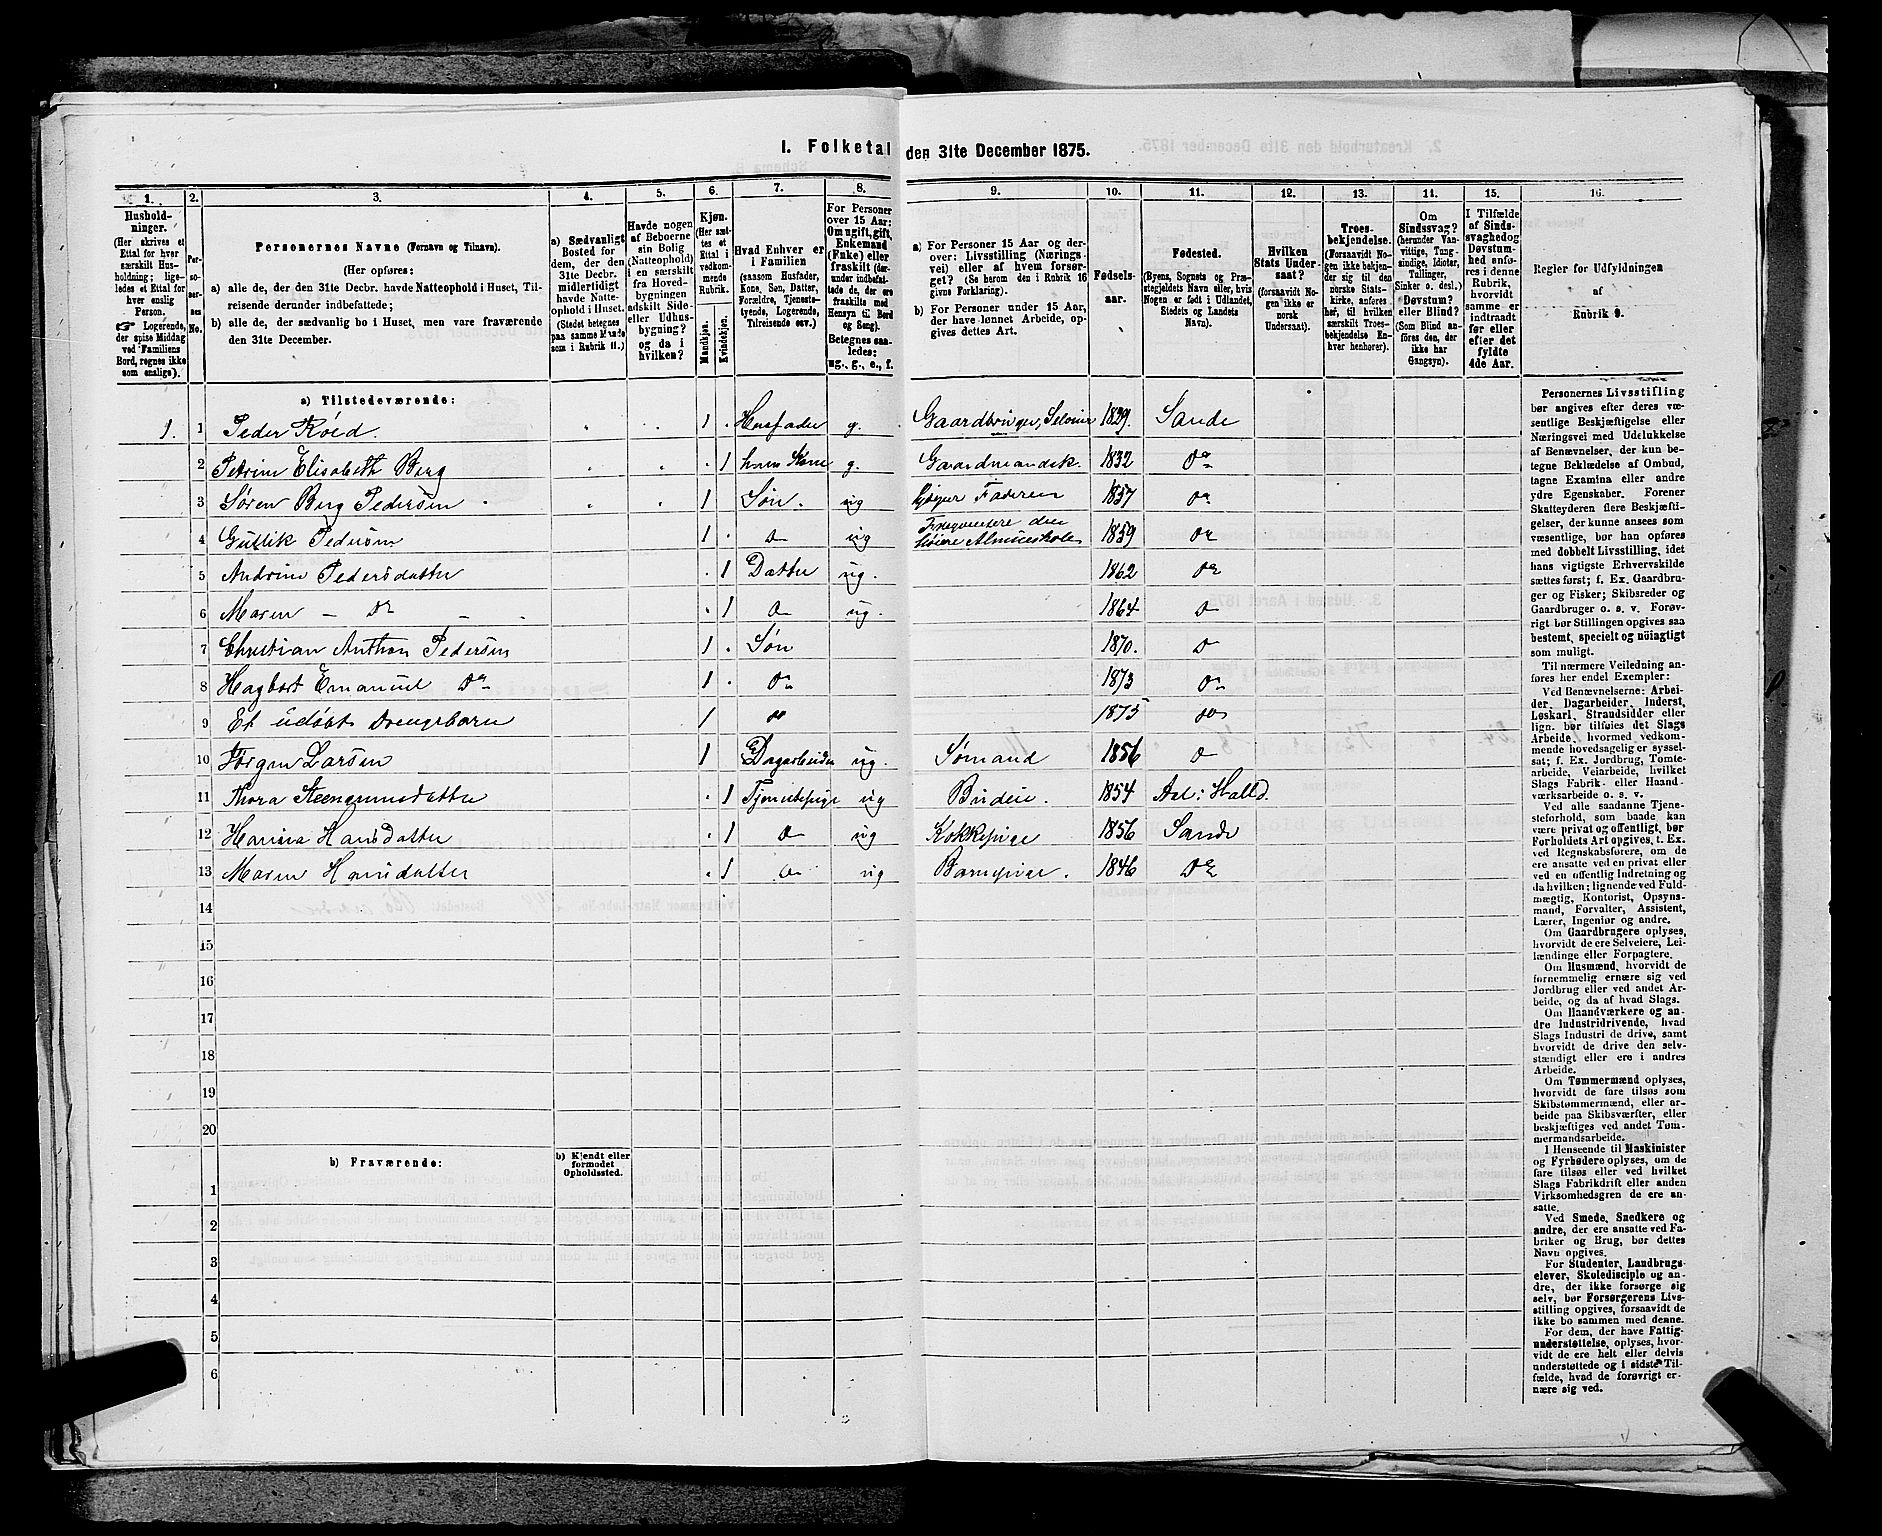 I. Folketal den 31te December 1875.
1.
Husholdninger.
(Her skrives et Ettal for hver særskilt Husholdning; ligeledes et Ettal for hver enslig Person.
☞ Logerende, der spise Middag ved Familiens Bord, regnes ikke som enslige).
2.
Personernes No.
3.
Personernes Navne (Fornavn og Tilnavn).
(Her opføres:
a) alle de, der den 31te Decbr. havde Natteophold i Huset, Tilreisende derunder indbefattede;
b) alle de, der sædvanlig bo i Huset, men vare fraværende den 31te December.
4.
a) Sædvanligt Bosted for dem, der den 31te Decbr. midlertidigt havde Natteophold i Huset. (Stedet betegnes paa samme Maade som i Rubrik 11.)
5.
Havde nogen af Beboerne sin Bolig (Natteophold) i en særskilt fra Hovedbygningen adskilt Side- eller Udhusbygning? og da i hvilken?
6.
Kjøn.
(Her sættes et Ettal i vedkommende Rubrik.
Mandkjøn.
Kvindekjøn.
7.
Hvad Enhver er i Familien
(saasom Husfader, Kone, Søn, Datter, Forældre, Tjenestetyende, Logerende, Tilreisende osv.)
8.
For Personer over 15 Aar: Om ugift, gift, Enkemand (Enke) eller fraskilt (derunder indbefattede de, der ere fraskilte med Hensyn til Bord og Seng).
Betegnes saaledes:
ug., g., e., f.
9.
a) For Personer 15 Aar og derover: Livsstilling (Næringsvei) eller af hvem forsørget? (Se herom den i Rubrik 16 givne Forklaring).
b) For Personer under 15 Aar, der have lønnet Arbeide, opgives dettes Art.
10.
Fødselsaar.
11.
Fødested.
(Byens, Sognets og Præstegjeldets Navn eller, hvis Nogen er født i Udlandet, Stedets og Landets Navn).
12.
Hvilken Stats Undersaat?
(forsaavidt Nogen ikke er norsk Undersaat).
13.
Troesbekjendelse.
(Forsaavidt Nogen ikke bekjender sig til den norske Statskirke, anføres her, til hvilken særskilt Troesbekjendelse Enhver henhører).
14.
Om Sindssvag?
(herunder Vanvittige, Tungsindige, Idioter, Tullinger, Sinker o. desl.)
Døvstum? eller Blind?
(Som Blind anføres den, der ikke har Gangsyn).
15.
I Tilfælde af Sindssvaghed og Døvstumhed anføres i denne Rubrik, hvorvidt samme er indtraadt før eller efter det fyldte 4de Aar.
16.
Regler for Udfyldningen af Rubrik 9.
a) Tilstedeværende:
1. 1 Peder Røed. 1 Husfader g. Gaardbruger, Selveier 1829. Sande
2 Petrine Elisabeth Berg 1 hans Kone g. Gaardmandsk. 1832 Do
3 Søren Berg Pedersen 1 Søn. ug hjælper Faderen 1857 Do
4 Gullik Pedersen 1 Do ug Frequentere den høiere Almueskole 1859 Do
5 Andrine Pedersdatter 1 Datter ug. 1862 Do
6 Maren — Do — 1 Do ug. 1864 Do
7 Christian Anthon Pedersen 1 Søn 1870. Do
8 Hagbart Emanuel Do 1 Do 1873 Do
9 Et udøbt Drengebarn 1 Do 1875 Do
10 Jørgen Larsen 1 Dagarbeider ug. Sømand 1856 Do
11 Thora 1 Tjenestepige ug Budeie. 1854 Aal i Halld.
12 Hansdatter 1 Do ug Kokkepige 1856 Sande
13 Maren Hansdatter 1 Do ug Barnepige. 1846 Do
14
15
16
17
18
19
20
b) Fraværende:
b) Kjendt eller formodet Opholdssted.
1
2
3
4
5
6
Personernes Livsstilling bør angives efter deres væsentlige Beskjæftigelse eller Næringsvei med Udelukkelse af Benævnelser, der kun betegne Beklædelse af Ombud, tagne Examina eller andre ydre Egenskaber. Forener Skatteyderen flere Beskjæftigelser, der kunne ansees som væsentlige, bør han opføres med dobbelt Livsstilling, idet hans vigtigste Erhvervskilde sættes først; f. Ex. Gaardbruger og Fisker; Skibsreder og Gaardbruger o. s. v. Forøvrigt bør Stillingen opgives saa bestemt, specielt og nøiagtigt som muligt.
Til nærmere Veiledning anføres her endel Exempler:
Ved Benævnelserne: Arbeider, Dagarbeider, Inderst, Løskarl, Strandsidder eller lign. bør tilføies det Slags Arbeide, hvormed vedkommende hovedsagelig er sysselsat; f. Ex. Jordbrug, Tomtearbeide, Veiarbeide, hvilket Slags Fabrik- eller Haandværksarbeide o. s. v.
Ved alle saadanne Tjenesteforhold, som baade kan være privat og offentligt, bør Forholdets Art opgives, t. Ex. ved Regnskabsførere, om de ere ansatte ved en privat eller ved en offentlig Indretning og da hvilken; lignende ved Fuldmægtig, Kontorist, Opsynsmand, Forvalter, Assistent, Lærer, Ingeniør og andre.
Om Gaardbrugere oplyses, hvorvidt de ere Selveiere, Leilændinge eller Forpagtere.
Om Husmænd, hvorvidt de fornemmelig ernære sig ved Jordbrug eller ved andet Arbeide, og da af hvad Slags.
Om Haandværkere og andre Industridrivende, hvad Slags Industri de drive, samt hvorvidt de drive den selvstændigt eller ere i andres Arbeide.
Om Tømmermænd oplyses, hvorvidt de fare tilsøs som Skibstømmermænd, eller arbeide paa Skibsværfter, eller beskjæftiges ved andet Tømmermandsarbeide.
I Henseende til Maskinister og Fyrbødere oplyses, om de fare tilsøs eller ved hvilket Slags Fabrikdrift eller anden Virksomhedsgren de ere ansatte.
Ved Smede, Snedkere og andre, der ere ansatte ved Fabriker og Brug, bør dettes Navn opgives.
For Studenter, Landbrugselever, Skoledisciple og andre, der ikke forsørge sig selv, bør Forsørgerens Livsstilling opgives, forsaavidt de ikke bo sammen med denne.
For dem, der have Fattigunderstøttelse, oplyses, hvorvidt de ere helt eller delvis understøttede og i sidste Tilfælde, hvad de forøvrigt ernære sig ved.